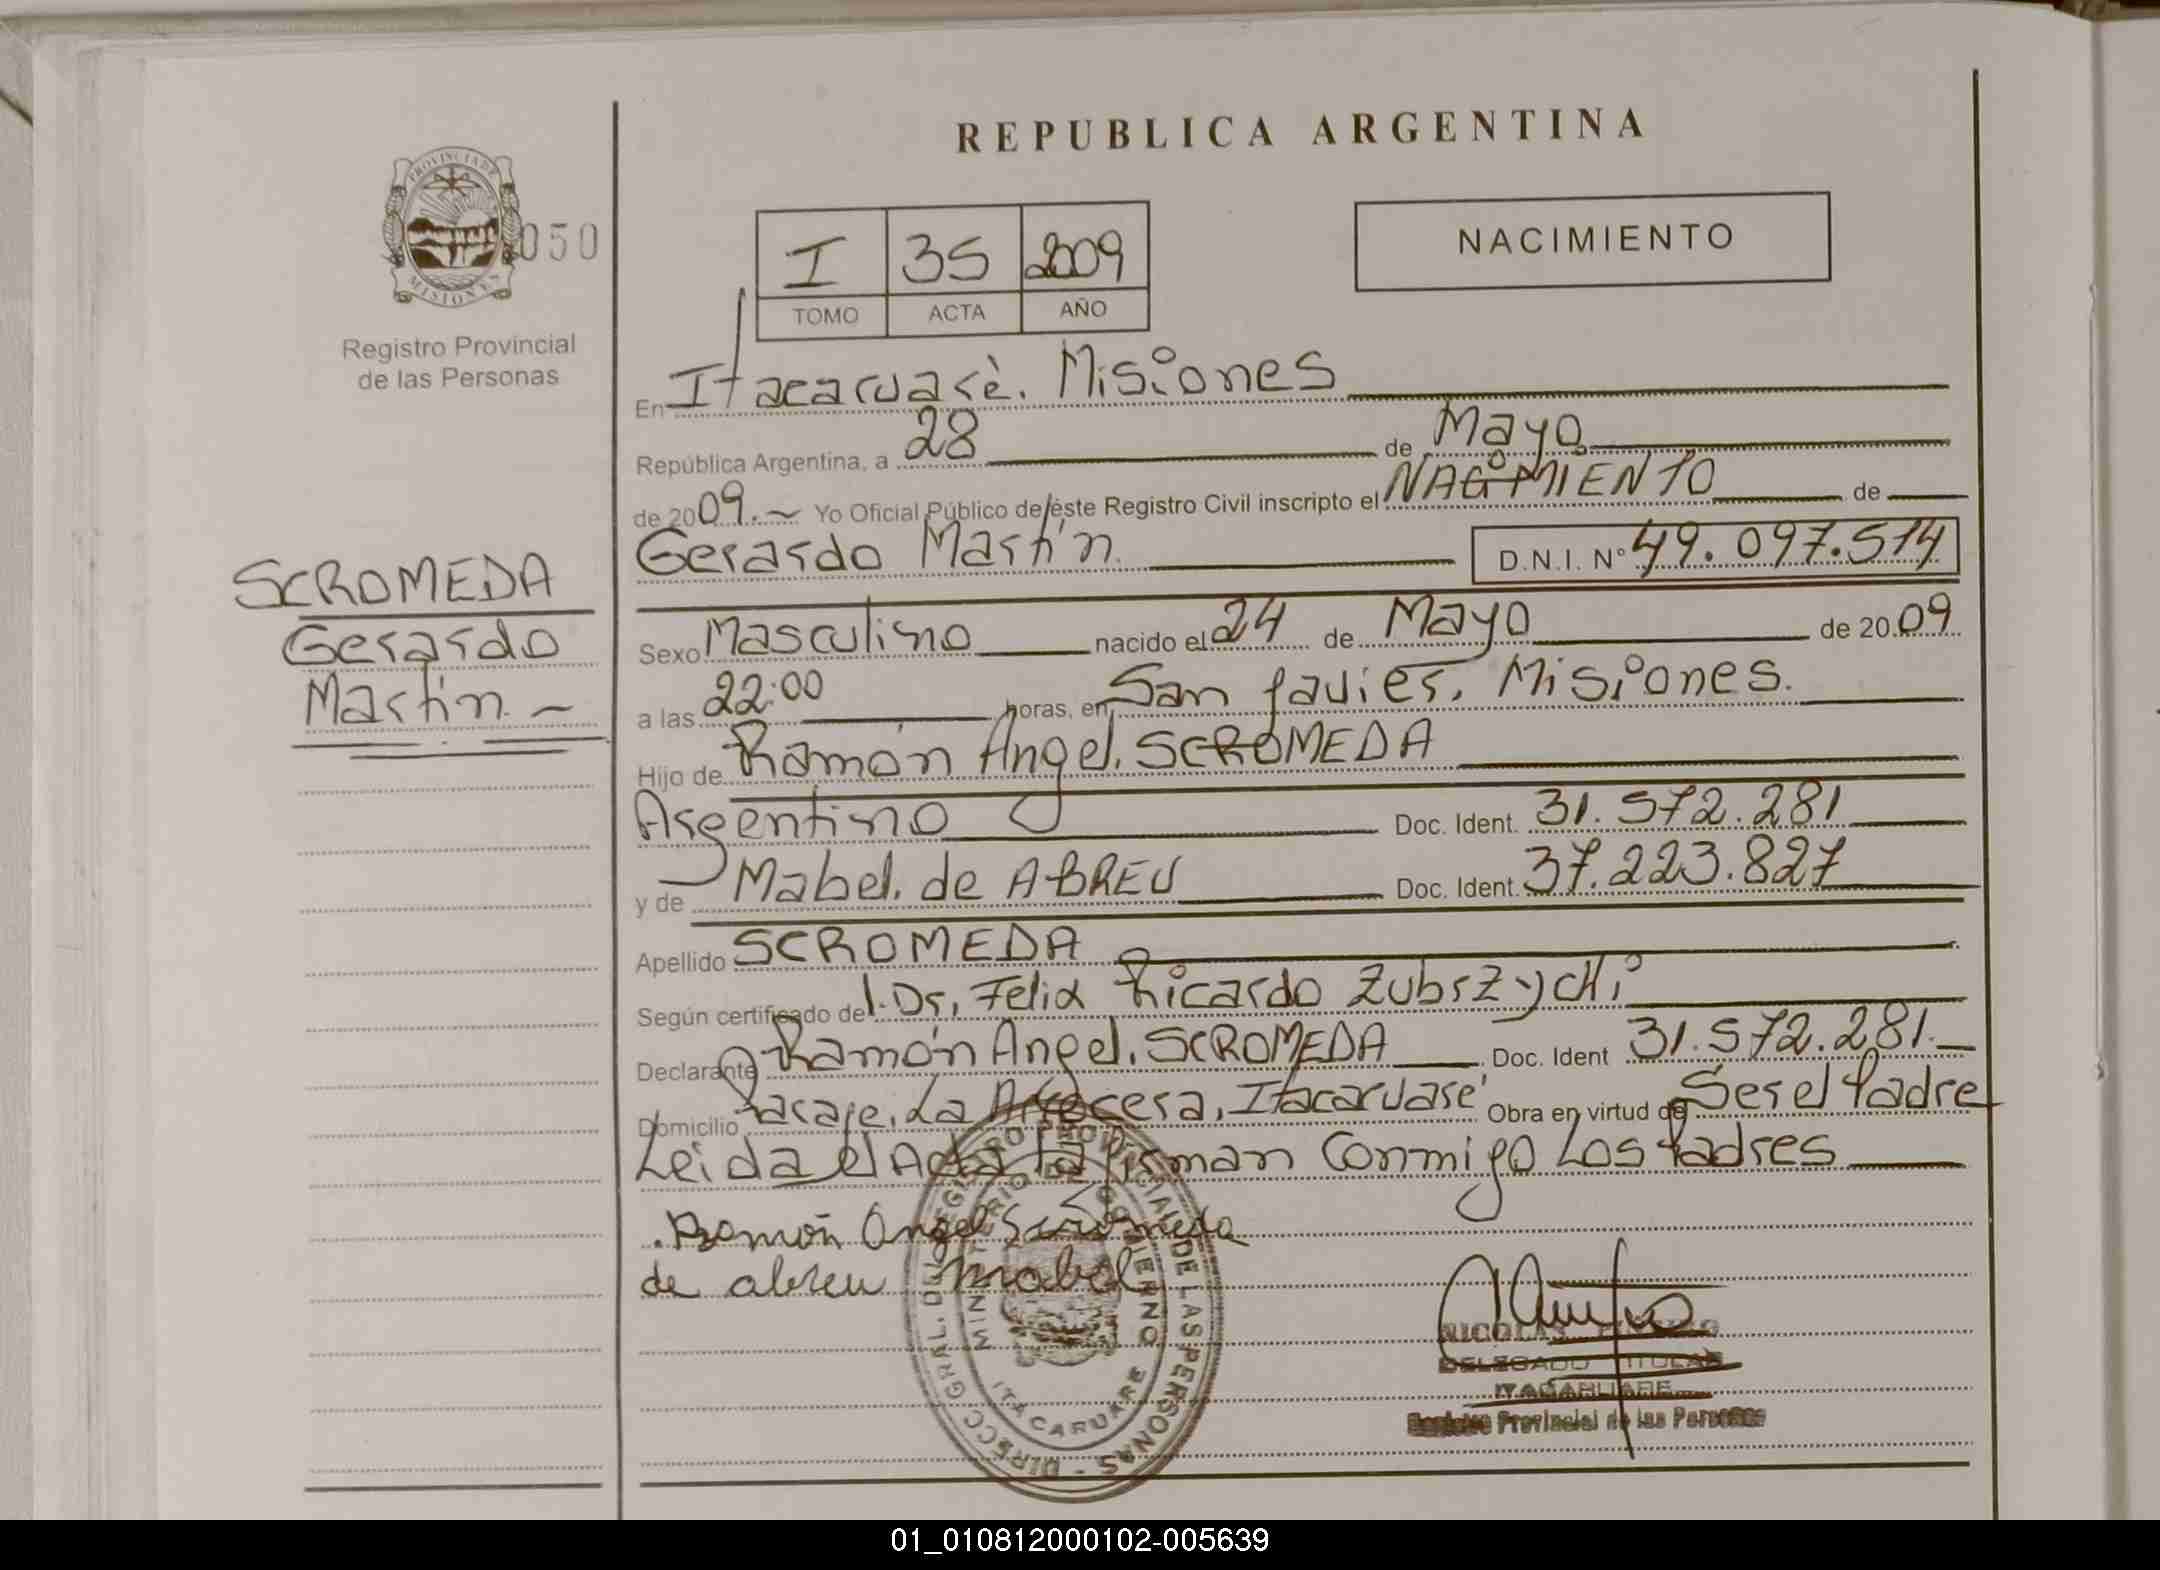 REPUBLICA ARGENTINA
PROVINCIA DE
MISIONES
050
Registro Provincial
de las Personas
I 35 2009
TOMO ACTA AÑO
NACIMIENTO
En Itacaruarè. Misiones
República Argentina, a 28 de Mayo
de 2009.~ Yo Oficial Público de éste Registro Civil inscripto el NACIMIENTO de
Gerardo Martín. D.N.I. Nº 49.097.514
SCROMEDA
Gerardo
Martín. —
Sexo Masculino nacido el 24 de Mayo de 20 09
a las 22:00 horas, en San Javier. Misiones.
Hijo de Ramón Angel. SCROMEDA
Argentino Doc. Ident. 31.572.281
y de Mabel. de ABREU Doc. Ident. 37.223.827
Apellido SCROMEDA
Según certificado del. Dr. Felix Ricardo ZubrzychI
Declarante Ramón Angel. SCROMEDA Doc. Ident 31.572.281.—
Domicilio Paraje. La Itacaruare' Obra en virtud de Ser el Padre
Leida el Acta la Firman Conmigo Los Padres
. Ramón Angel Scromeda
de abreu mabel
DIRECC. GRAL. DEL REGISTRO PROVINCIAL DE LAS PERSONAS -
MINISTERIO DE GOBIERNO
ITACARUARE
NICOLAS
DELEGADO TITULAR
ITACARUARE
Registro Provincial de las Personas
01_010812000102-005639